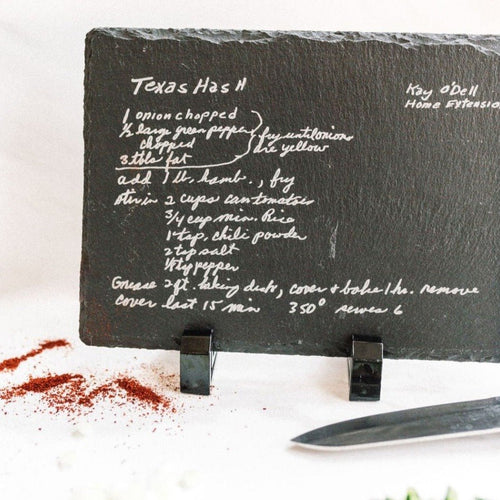 Texas Hash
Kay O'Dell
Home Extension
1 onion chopped
½ large green pepper
chopped
3 tbls fat
fry until onions
are yellow
add 1 lb. hamb., fry
stir in 2 cups can tomatoes
3/4 cup min. Rice
1 tsp. chili powder
2 tsp salt
⅛ tsp pepper
Grease 2 qt. baking dish, cover & bake 1 hr. remove
cover last 15 min 350° serves 6